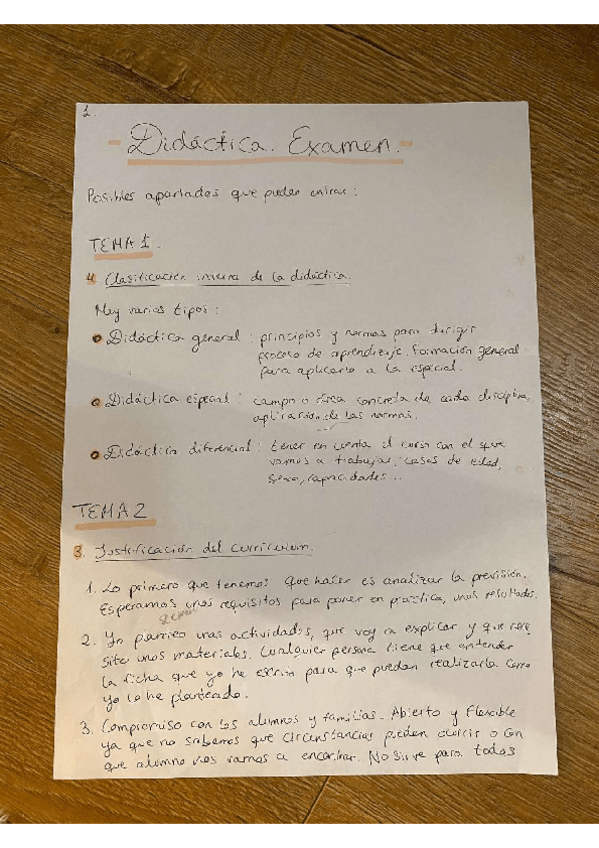 1.
- Didáctica. Examen. -
Posibles apartados que pueden entrar:
TEMA 1.
4 Clasificación interna de la didáctica.
Hay varios tipos:
Didáctica general: principios y normas para dirigir
proceso de aprendizaje. Formación general
para aplicarlo a la especial.
Didáctica especial: campo o área concreta de cada disciplina
aplicación de las normas.
Didáctica diferencial: tener en cuenta el curso con el que
vamos a trabajar, casos de edad,
sexo, capacidades...
TEMA 2
3. Justificación del curriculum.
1. Lo primero que tenemos que hacer es analizar la previsión.
Esperamos unos requisitos para poner en práctica, unos resultados.
2. Yo planteo unas actividades, que voy a explicar y que nece
sito unos materiales. Cualquier persona tiene que entender
la ficha que yo he escrito para que puedan realizarla como
yo lo he planteado.
3. Compromiso con los alumnos y familias. Abierto y flexible
ya que no sabemos que circunstancias pueden ocurrir o con
que alumno nos vamos a encontrar. No sirve para todos